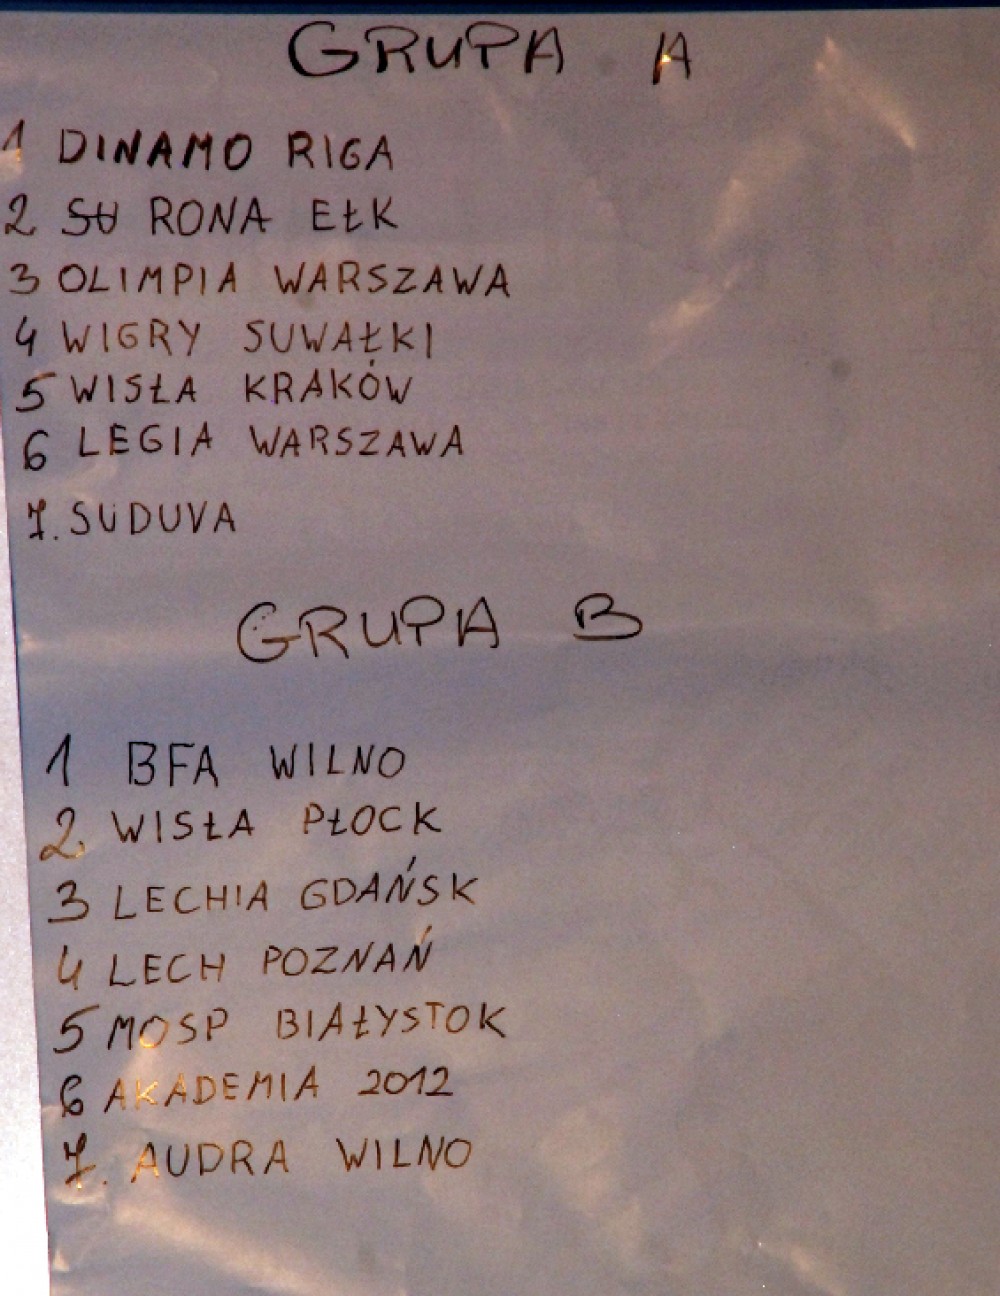 GRUPA A
1 DINAMO RIGA
2 RONA EŁK
3 OLIMPIA WARSZAWA
4 WIGRY SUWAŁKI
5 WISŁA KRAKÓW
6 LEGIA WARSZAWA
7. SUDUVA
GRUPA B
1 BFA WILNO
2. WISŁA PŁOCK
3 LECHIA GDAŃSK
4 LECH POZNAŃ
5 MOSP BIAŁYSTOK
6 AKADEMIA 2012
7. AUDRA WILNO